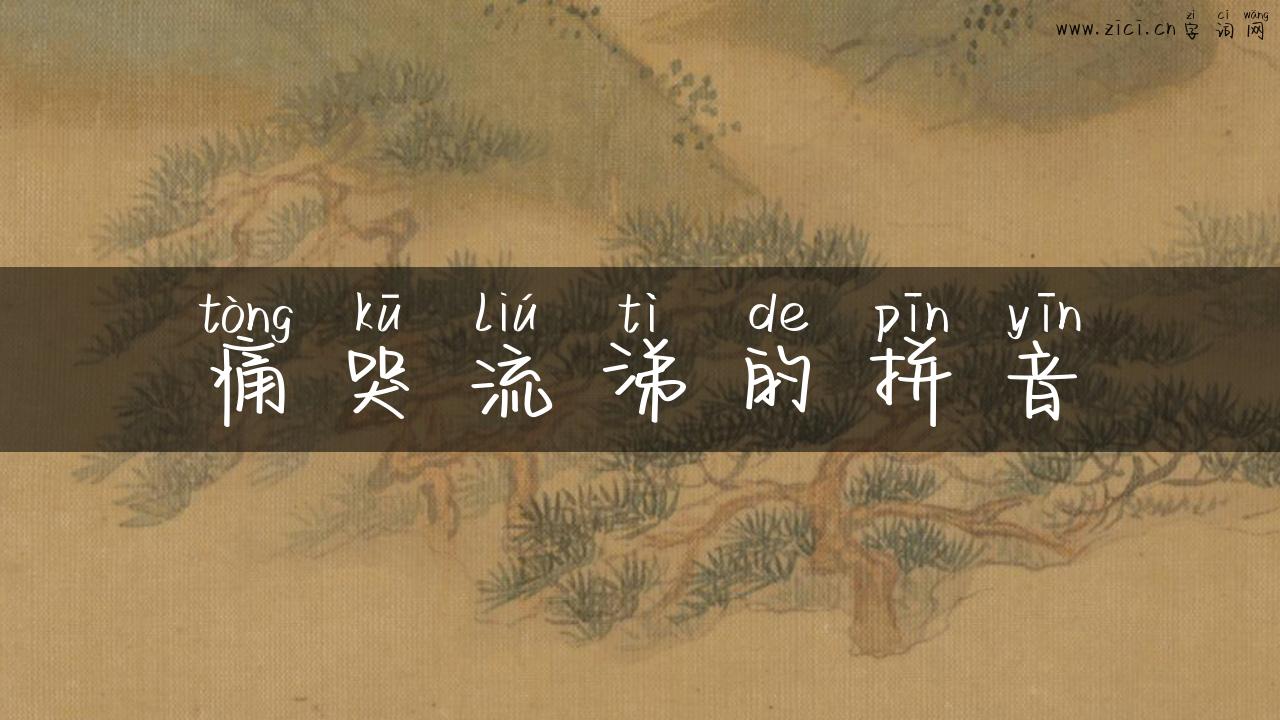 zì cí wǎng
www.zici.cn 字词网
tòng kū liú tì de pīn yīn
痛哭流涕的拼音